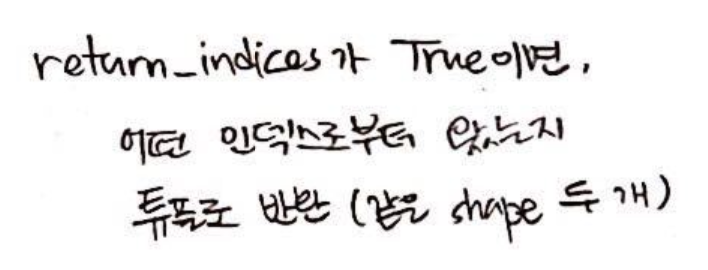 return_indices가 True이면,
어떤 인덱스로부터 왔는지
튜플로 반환 (같은 shape 두 개)